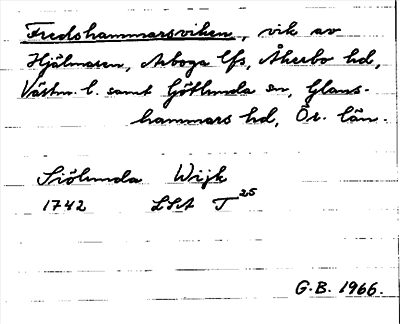 Fredshammarsviken, vik av
Hjälmaren, Arboga lfs, Åkerbo hd,
Västm. l. samt Götlunda sn, Glans-
hammars hd, Ör. län.
Siölunda Wijk
1742 LSA T 25
G.B. 1966.